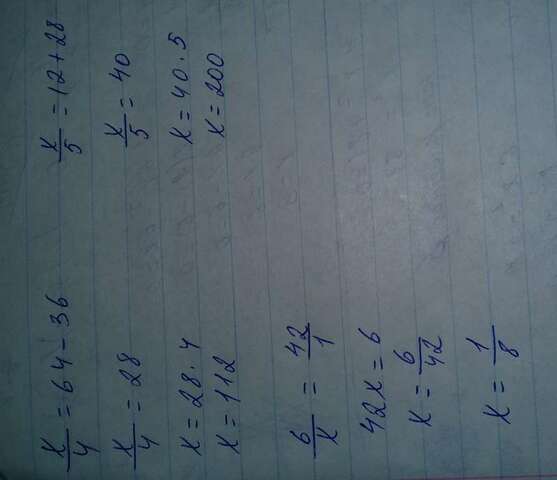 x/4 = 64 - 36
x/4 = 28
x = 28 · 4
x = 112
x/5 = 12 + 28
x/5 = 40
x = 40 · 5
x = 200
6/x = 42/1
42x = 6
x = 6/42
x = 1/8